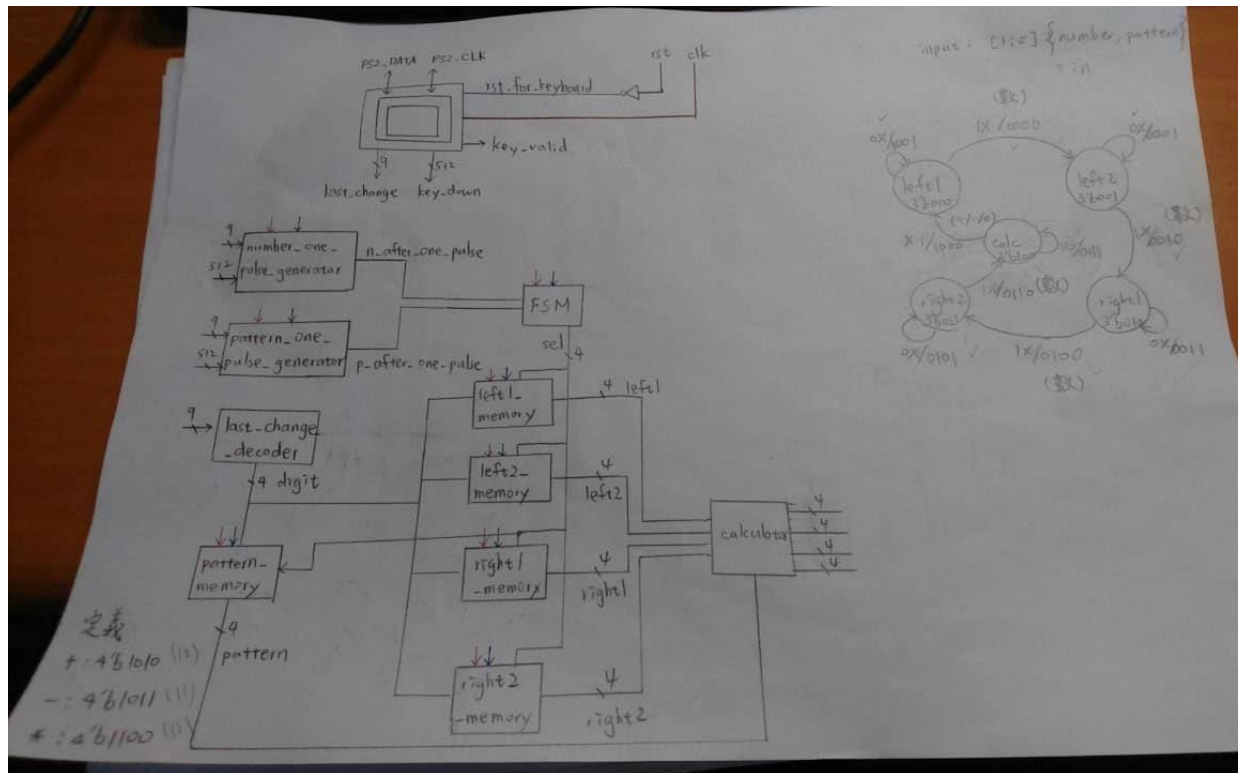 PS2_DATA PS2_CLK
rst clk
rst_for_keyboard
key_valid
9
512
last_change key_down
9
512
number_one_
pulse_generator
n_after_one_pulse
9
512
pattern_one_
pulse_generator
p_after_one_pulse
FSM
sel
4
9
last_change
_decoder
4 digit
left1_
memory
4 left1
left2_
memory
4
left2
right1
_memory
4
right1
right2
_memory
4
right2
pattern_
memory
4
pattern
calculator
4
4
4
4
定義
+ : 4'b1010 (10)
- : 4'b1011 (11)
* : 4'b1100
input : [1:0] {number, pattern}
= in
(數)
1X/0000
0X/0001
left2
3'b001
left1
3'b000
(數)
1X/0010
X1/1000
calc
3'b100
1X/0110 (數)
right2
3'b011
right1
3'b010
0X/0101
1X/0100
(數)
0X/0011